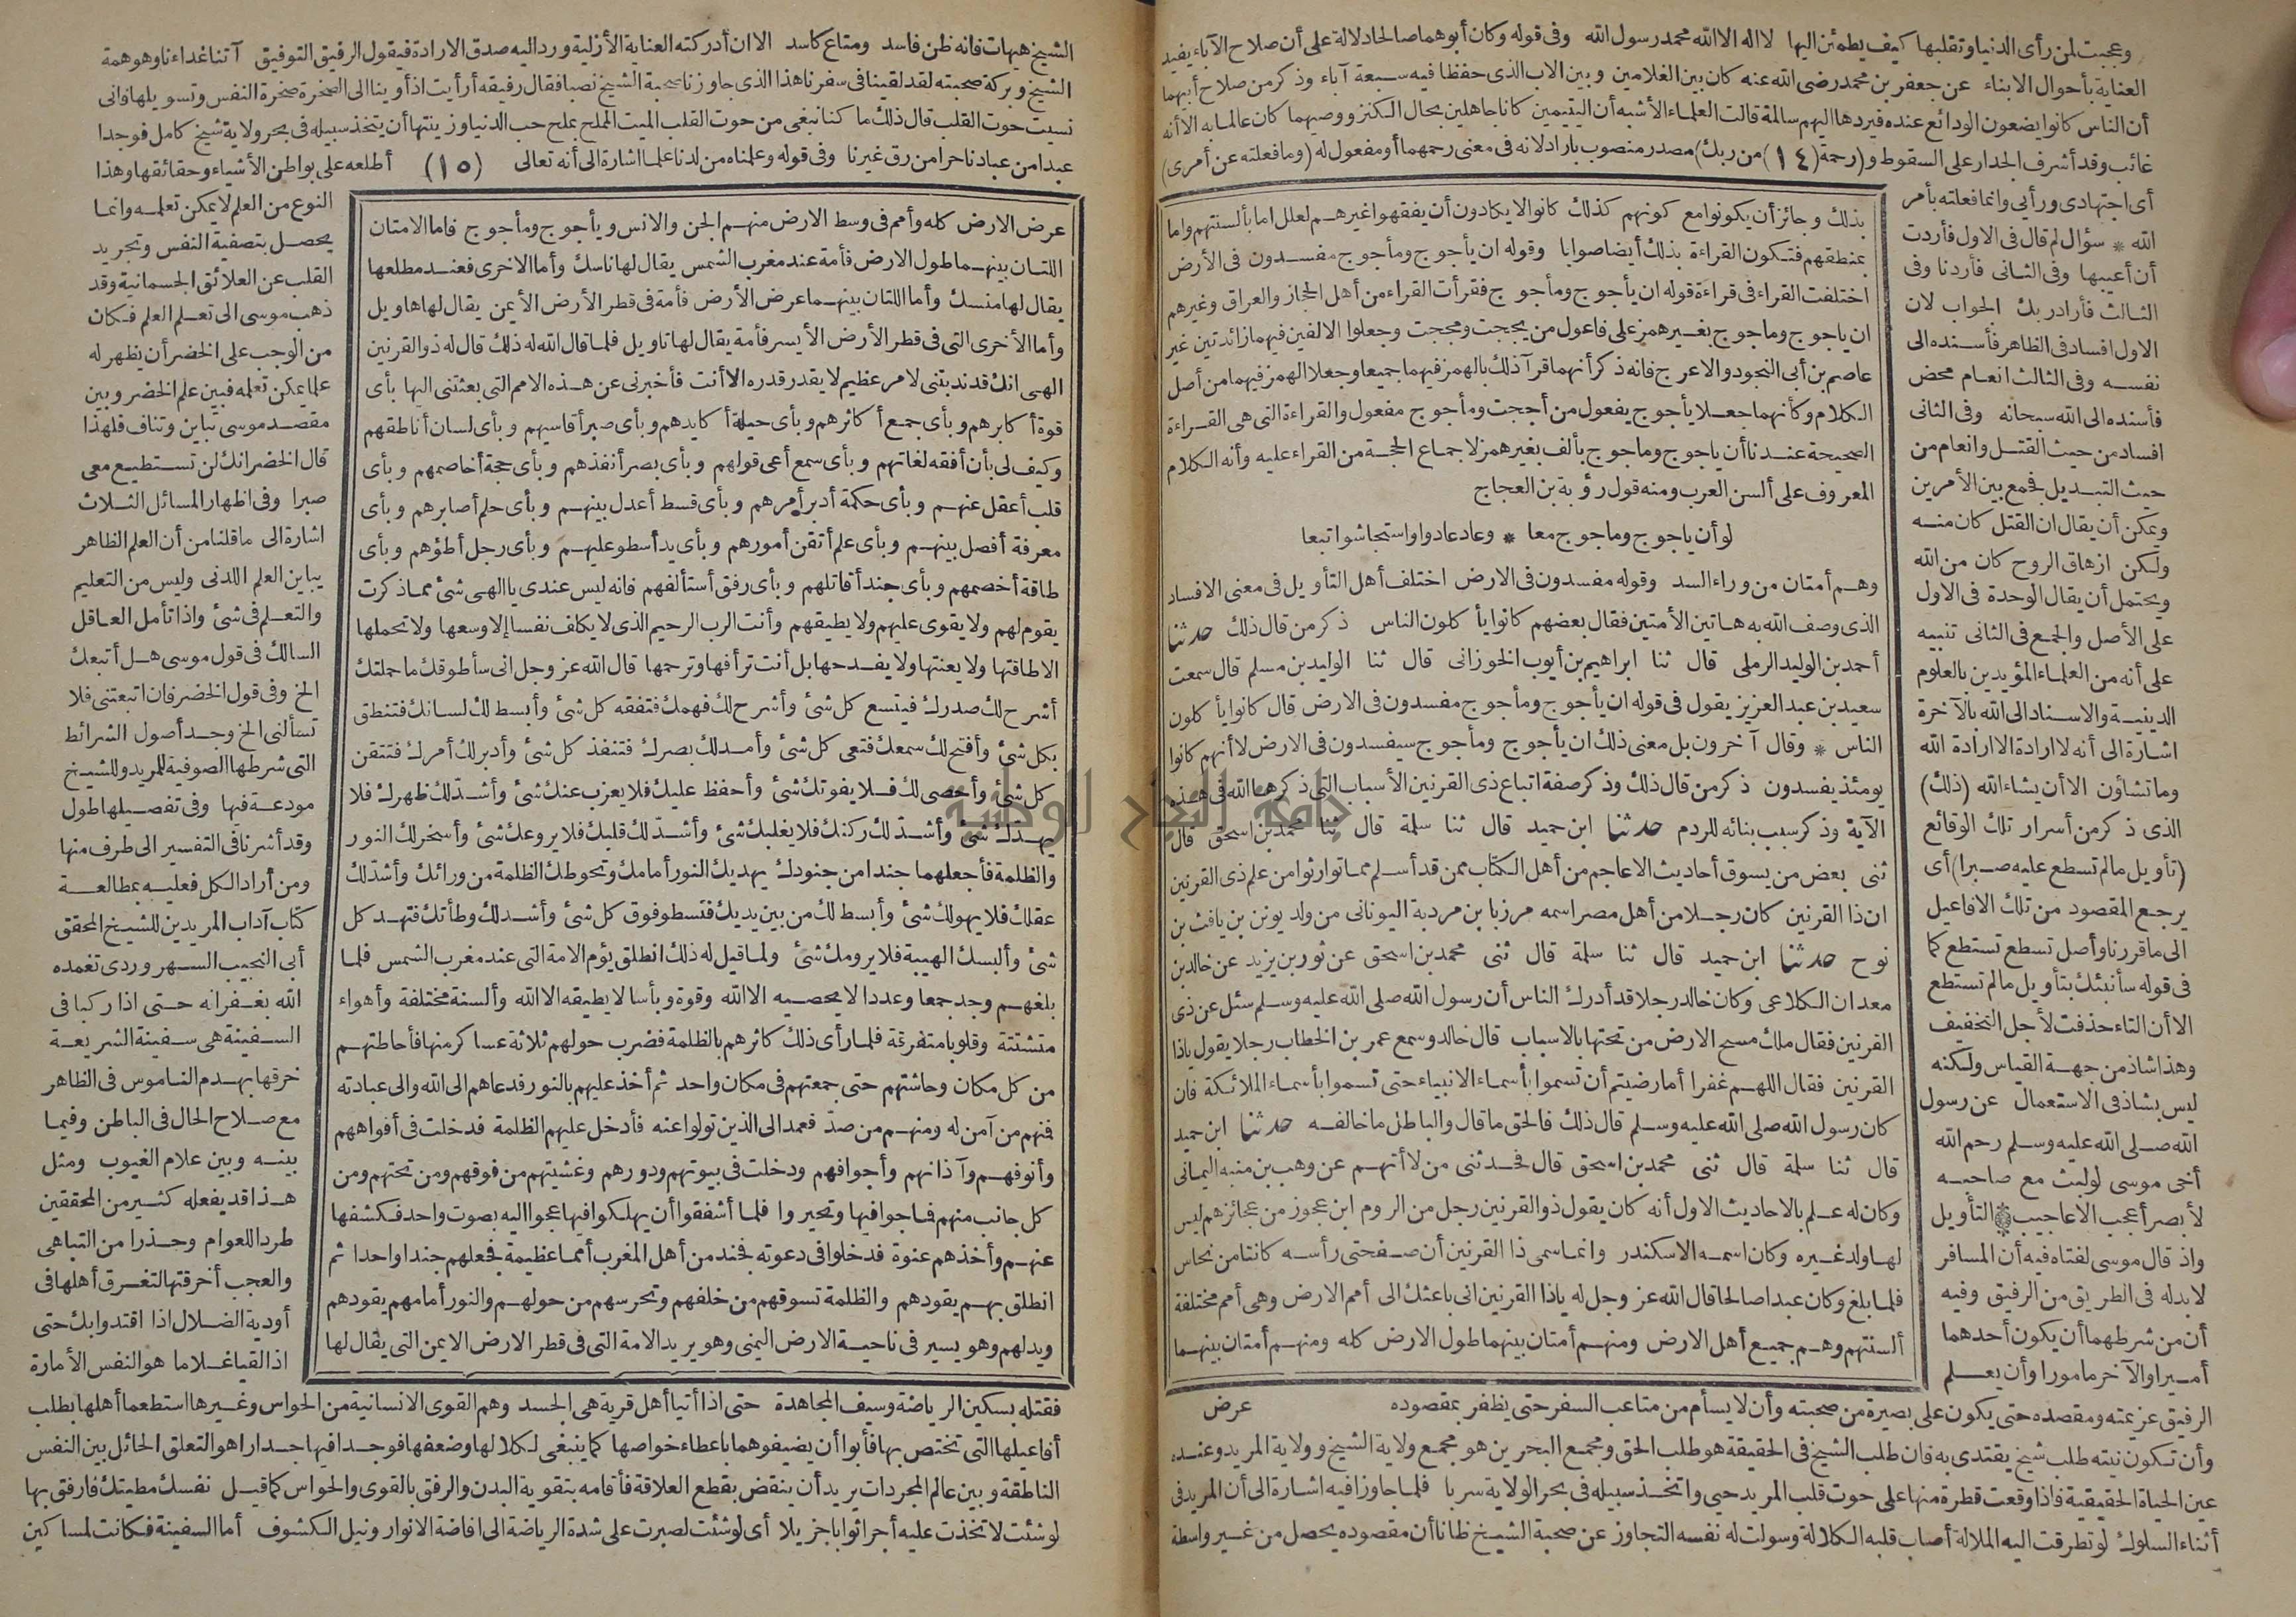 وعجبت لمن رأى الدنيا وتقلبها كيف يطمئن اليها لا اله الا الله محمد رسول الله وفى قوله وكان أبوهما صالحا دلالة على أن صلاح الآباء يفيد
العناية بأحوال الابناء عن جعفر بن محمد رضى الله عنه كان بين الغلامين وبين الاب الذى حفظا فيه سبعة آباء وذكر من صلاح أبيهما
أن الناس كانوا يضعون الودائع عنده فيردها اليهم سالمة قالت العلماء الأشبه أن اليتيمين كانا جاهلين بحال الكنز ووصيهما كان عالما به الا أنه
غائب وقد أشرف الجدار على السقوط و(رحمة (١٤) من ربك) مصدر منصوب بأراد لانه فى معنى رحمهما أو مفعول له (وما فعلته عن أمرى)
أى اجتهادى ورأيى وانما فعلته بأمر
الله * سؤال لم قال فى الاول فأردت
أن أعيبها وفى الثانى فأردنا وفى
الثالث فأراد ربك الجواب لان
الاول افساد فى الظاهر فأسنده الى
نفسه وفى الثالث انعام محض
فأسنده الى الله سبحانه وفى الثانى
افساد من حيث القتل وانعام من
حيث التبديل فجمع بين الأمرين
ويمكن أن يقال ان القتل كان منه
ولكن ازهاق الروح كان من الله
ويحتمل أن يقال الوحدة فى الاول
على الأصل والجمع فى الثانى تنبيه
على أنه من العلماء المؤيدين بالعلوم
الدينية والاسناد الى الله بالآخرة
اشارة الى أنه لا ارادة الا ارادة الله
وما تشاؤن الا أن يشاء الله (ذلك)
الذى ذكر من أسرار تلك الوقائع
(تأويل ما لم تسطع عليه صبرا) أى
يرجع المقصود من تلك الافاعيل
الى ما قررنا وأصل تسطع تستطع كما
فى قوله سأنبئك بتأويل ما لم تستطع
الا أن التاء حذفت لأجل التخفيف
وهذا شاذ من جهة القياس ولكنه
ليس بشاذ فى الاستعمال عن رسول
الله صلى الله عليه وسلم رحم الله
أخى موسى لو لبث مع صاحبه
لأبصر أعجب الاعاجيب التأويل
واذ قال موسى لفتاه فيه أن المسافر
لا بد له فى الطريق من الرفيق وفيه
أن من شرطهما أن يكون أحدهما
أميرا والآخر مأمورا وأن يعلم
بذلك وجائز أن يكونوا مع كونهم كذلك كانوا لا يكادون أن يفقهوا غيرهم لعلل اما بألسنتهم واما
بمنطقهم فتكون القراءة بذلك أيضا صوابا وقوله ان يأجوج ومأجوج مفسدون فى الأرض
اختلفت القراء فى قراءة قوله ان يأجوج ومأجوج فقرأت القراء من أهل الحجاز والعراق وغيرهم
ان ياجوج وماجوج بغير همز على فاعول من يججت ومججت وجعلوا الالفين فيهما زائدتين غير
عاصم بن أبى النجود والاعرج فانه ذكر أنهما قرآ ذلك بالهمز فيهما جميعا وجعلا الهمز فيهما من أصل
الكلام وكأنهما جعلا يأجوج يفعول من أججت ومأجوج مفعول والقراءة التى هى القراءة
الصحيحة عندنا أن ياجوج وماجوج بألف بغير همز لاجماع الحجة من القراء عليه وأنه الكلام
المعروف على ألسن العرب ومنه قول رؤبة بن العجاج
لو أن ياجوج وماجوج معا * وعاد عادوا واستجاشوا تبعا
وهم أمتان من وراء السد وقوله مفسدون فى الارض اختلف أهل التأويل فى معنى الافساد
الذى وصف الله به هاتين الأمتين فقال بعضهم كانوا يأكلون الناس ذكر من قال ذلك حدثنا
أحمد بن الوليد الرملى قال ثنا ابراهيم بن أيوب الخوزانى قال ثنا الوليد بن مسلم قال سمعت
سعيد بن عبد العزيز يقول فى قوله ان يأجوج ومأجوج مفسدون فى الارض قال كانوا يأكلون
الناس * وقال آخرون بل معنى ذلك ان يأجوج ومأجوج سيفسدون فى الارض لا أنهم كانوا
يومئذ يفسدون ذكر من قال ذلك وذكر صفة اتباع ذى القرنين الأسباب التى ذكرها الله فى هذه
الآية وذكر سبب بنائه للردم حدثنا ابن حميد قال ثنا سلمة قال ثنا محمد بن اسحق قال
ثنى بعض من يسوق أحاديث الاعاجم من أهل الكتاب ممن قد أسلم مما توارثوا من علم ذى القرنين
ان ذا القرنين كان رجلا من أهل مصر اسمه مرزبا بن مردبة اليونانى من ولد يونن بن يافث بن
نوح حدثنا ابن حميد قال ثنا سلمة قال ثنى محمد بن اسحق عن ثور بن يزيد عن خالد بن
معدان الكلاعى وكان خالد رجلا قد أدرك الناس أن رسول الله صلى الله عليه وسلم سئل عن ذى
القرنين فقال ملك مسح الارض من تحتها بالاسباب قال خالد وسمع عمر بن الخطاب رجلا يقول ياذا
القرنين فقال اللهم غفرا أما رضيتم أن تسموا بأسماء الانبياء حتى تسموا بأسماء الملائكة فان
كان رسول الله صلى الله عليه وسلم قال ذلك فالحق ما قال والباطل ما خالفه حدثنا ابن حميد
قال ثنا سلمة قال ثنى محمد بن اسحق قال فحدثنى من لا أتهم عن وهب بن منبه اليمانى
وكان له علم بالاحاديث الاول أنه كان يقول ذو القرنين رجل من الروم ابن عجوز من عجائزهم ليس
لها ولد غيره وكان اسمه الاسكندر وانما سمى ذا القرنين أن صفحتى رأسه كانتا من نحاس
فلما بلغ وكان عبدا صالحا قال الله عز وجل له ياذا القرنين انى باعثك الى أمم الارض وهى أمم مختلفة
ألسنتهم وهم جميع أهل الارض ومنهم أمتان بينهما طول الارض كله ومنهم أمتان بينهما
الرفيق عزيمته ومقصده حتى يكون على بصيرة من صحبته وأن لا يسأم من متاعب السفر حتى يظفر بمقصوده عرض
وأن تكون نيته طلب شيخ يقتدى به فان طلب الشيخ فى الحقيقة هو طلب الحق ومجمع البحرين هو مجمع ولاية الشيخ وولاية المريد وعنده
عين الحياة الحقيقية فاذا وقعت قطرة منها على حوت قلب المريد حيى واتخذ سبيله فى بحر الولاية سربا فلما جاوزا فيه اشارة الى أن المريد فى
أثناء السلوك لو تطرقت اليه الملالة أصاب قلبه الكلالة وسولت له نفسه التجاوز عن صحبة الشيخ ظانا أن مقصوده يحصل من غير واسطة
الشيخ هيهات فانه ظن فاسد ومتاع كاسد الا ان أدركته العناية الأزلية ورد اليه صدق الارادة فيقول الرفيق التوفيق آتنا غداءنا وهو همة
الشيخ وبركة صحبته لقد لقينا فى سفرنا هذا الذى جاوزنا صحبة الشيخ نصبا فقال رفيقه أرأيت اذ أوينا الى الصخرة صخرة النفس وتسويلها فانى
نسيت حوت القلب قال ذلك ما كنا نبغى من حوت القلب الميت المملح بملح حب الدنيا وزينتها أن يتخذ سبيله فى بحر ولاية شيخ كامل فوجدا
عبدا من عبادنا حرا من رق غيرنا وفى قوله وعلمناه من لدنا علما اشارة الى أنه تعالى (١٥) أطلعه على بواطن الأشياء وحقائقها وهذا
عرض الارض كله وأمم فى وسط الارض منهم الجن والانس ويأجوج ومأجوج فاما الامتان
اللتان بينهما طول الارض فأمة عند مغرب الشمس يقال لها ناسك وأما الاخرى فعند مطلعها
يقال لها منسك وأما اللتان بينهما عرض الأرض فأمة فى قطر الأرض الأيمن يقال لها هاويل
وأما الأخرى التى فى قطر الأرض الأيسر فأمة يقال لها تاويل فلما قال الله له ذلك قال له ذو القرنين
الهى انك قد ندبتنى لامر عظيم لا يقدر قدره الا أنت فأخبرنى عن هذه الامم التى بعثتنى اليها بأى
قوة أكابرهم وبأى جمع أكاثرهم وبأى حيلة أكايدهم وبأى صبر أقاسيهم وبأى لسان أناطقهم
وكيف لى بأن أفقه لغاتهم وبأى سمع أعى قولهم وبأى بصر أنفذهم وبأى حجة أخاصمهم وبأى
قلب أعقل عنهم وبأى حكمة أدبر أمرهم وبأى قسط أعدل بينهم وبأى حلم أصابرهم وبأى
معرفة أفصل بينهم وبأى علم أتقن أمورهم وبأى يد أسطو عليهم وبأى رجل أطؤهم وبأى
طاقة أخصمهم وبأى جند أقاتلهم وبأى رفق أستألفهم فانه ليس عندى يا الهى شئ مما ذكرت
يقوم لهم ولا يقوى عليهم ولا يطيقهم وأنت الرب الرحيم الذى لا يكلف نفسا إلا وسعها ولا تحملها
الا طاقتها ولا يعنتها ولا يفدحها بل أنت ترأفها وترحمها قال الله عز وجل انى سأطوقك ما حملتك
أشرح لك صدرك فيتسع كل شئ وأشرح لك فهمك فتفقه كل شئ وأبسط لك لسانك فتنطق
بكل شئ وأفتح لك سمعك فتعى كل شئ وأمد لك بصرك فتنفذ كل شئ وأدبر لك أمرك فتتقن
كل شئ وأحصى لك فلا يفوتك شئ وأحفظ عليك فلا يعزب عنك شئ وأشد لك ظهرك فلا
يهدك شئ وأشد لك ركنك فلا يغلبك شئ وأشد لك قلبك فلا يروعك شئ وأسخر لك النور
والظلمة فأجعلهما جندا من جنودك يهديك النور أمامك وتحوطك الظلمة من ورائك وأشد لك
عقلك فلا يهولك شئ وأبسط لك من بين يديك فتسطو فوق كل شئ وأشد لك وطأتك فتهد كل
شئ وألبسك الهيبة فلا يرومك شئ ولما قيل له ذلك انطلق يؤم الامة التى عند مغرب الشمس فلما
بلغهم وجد جمعا وعددا لا يحصيه الا الله وقوة وبأسا لا يطيقه الا الله وألسنة مختلفة وأهواء
متشتتة وقلوبا متفرقة فلما رأى ذلك كاثرهم بالظلمة فضرب حولهم ثلاثة عساكر منها فأحاطتهم
من كل مكان وحاشتهم حتى جمعتهم فى مكان واحد ثم أخذ عليهم بالنور فدعاهم الى الله والى عبادته
فمنهم من آمن له ومنهم من صد فعمد الى الذين تولوا عنه فأدخل عليهم الظلمة فدخلت فى أفواههم
وأنوفهم وآذانهم وأجوافهم ودخلت فى بيوتهم ودورهم وغشيتهم من فوقهم ومن تحتهم ومن
كل جانب منهم فماجوا فيها وتحيروا فلما أشفقوا أن يهلكوا فيها عجوا اليه بصوت واحد فكشفها
عنهم وأخذهم عنوة فدخلوا فى دعوته فجند من أهل المغرب أمما عظيمة فجعلهم جندا واحدا ثم
انطلق بهم يقودهم والظلمة تسوقهم من خلفهم وتحرسهم من حولهم والنور أمامهم يقودهم
ويدلهم وهو يسير فى ناحية الارض اليمنى وهو يريد الامة التى فى قطر الارض الايمن التى يقال لها
النوع من العلم لا يمكن تعلمه وانما
يحصل بتصفية النفس وتجريد
القلب عن العلائق الجسمانية وقد
ذهب موسى الى تعلم العلم فكان
من الوجب على الخضر أن يظهر له
علما يمكن تعلمه فبين علم الخضر وبين
مقصد موسى تباين وتناف فلهذا
قال الخضر انك لن تستطيع معى
صبرا وفى اظهار المسائل الثلاث
اشارة الى ما قلنا من أن العلم الظاهر
يباين العلم اللدنى وليس من التعليم
والتعلم فى شئ واذا تأمل العاقل
السالك فى قول موسى هل أتبعك
الخ وفى قول الخضر فان اتبعتنى فلا
تسألنى الخ وجد أصول الشرائط
التى شرطها الصوفية للمريد وللشيخ
مودعة فيها وفى تفصيلها طول
وقد أشرنا فى التفسير الى طرف منها
ومن أراد الكل فعليه بمطالعة
كتاب آداب المريدين للشيخ المحقق
أبى النجيب السهروردى تغمده
الله بغفرانه حتى اذا ركبا فى
السفينة هى سفينة الشريعة
خرقها بهدم الناموس فى الظاهر
مع صلاح الحال فى الباطن وفيما
بينه وبين علام الغيوب ومثل
هذا قد يفعله كثير من المحققين
طردا للعوام وحذرا من التباهى
والعجب أخرقتها لتغرق أهلها فى
أودية الضلال اذا اقتدوا بك حتى
اذا لقيا غلاما هو النفس الأمارة
فقتله بسكين الرياضة وسيف المجاهدة حتى اذا أتيا أهل قرية هى الجسد وهم القوى الانسانية من الحواس وغيرها استطعما أهلها بطلب
أفاعيلها التى تختص بها فأبوا أن يضيفوهما باعطاء خواصها كما ينبغى لكلالها وضعفها فوجدا فيها جدارا هو التعلق الحائل بين النفس
الناطقة وبين عالم المجردات يريد أن ينقض بقطع العلاقة فأقامه بتقوية البدن والرفق بالقوى والحواس كما قيل نفسك مطيتك فارفق بها
لو شئت لاتخذت عليه أجرا ثوابا جزيلا أى لو شئت لصبرت على شدة الرياضة الى افاضة الانوار ونيل الكشوف أما السفينة فكانت لمساكين
جامعة النجاح الوطنية